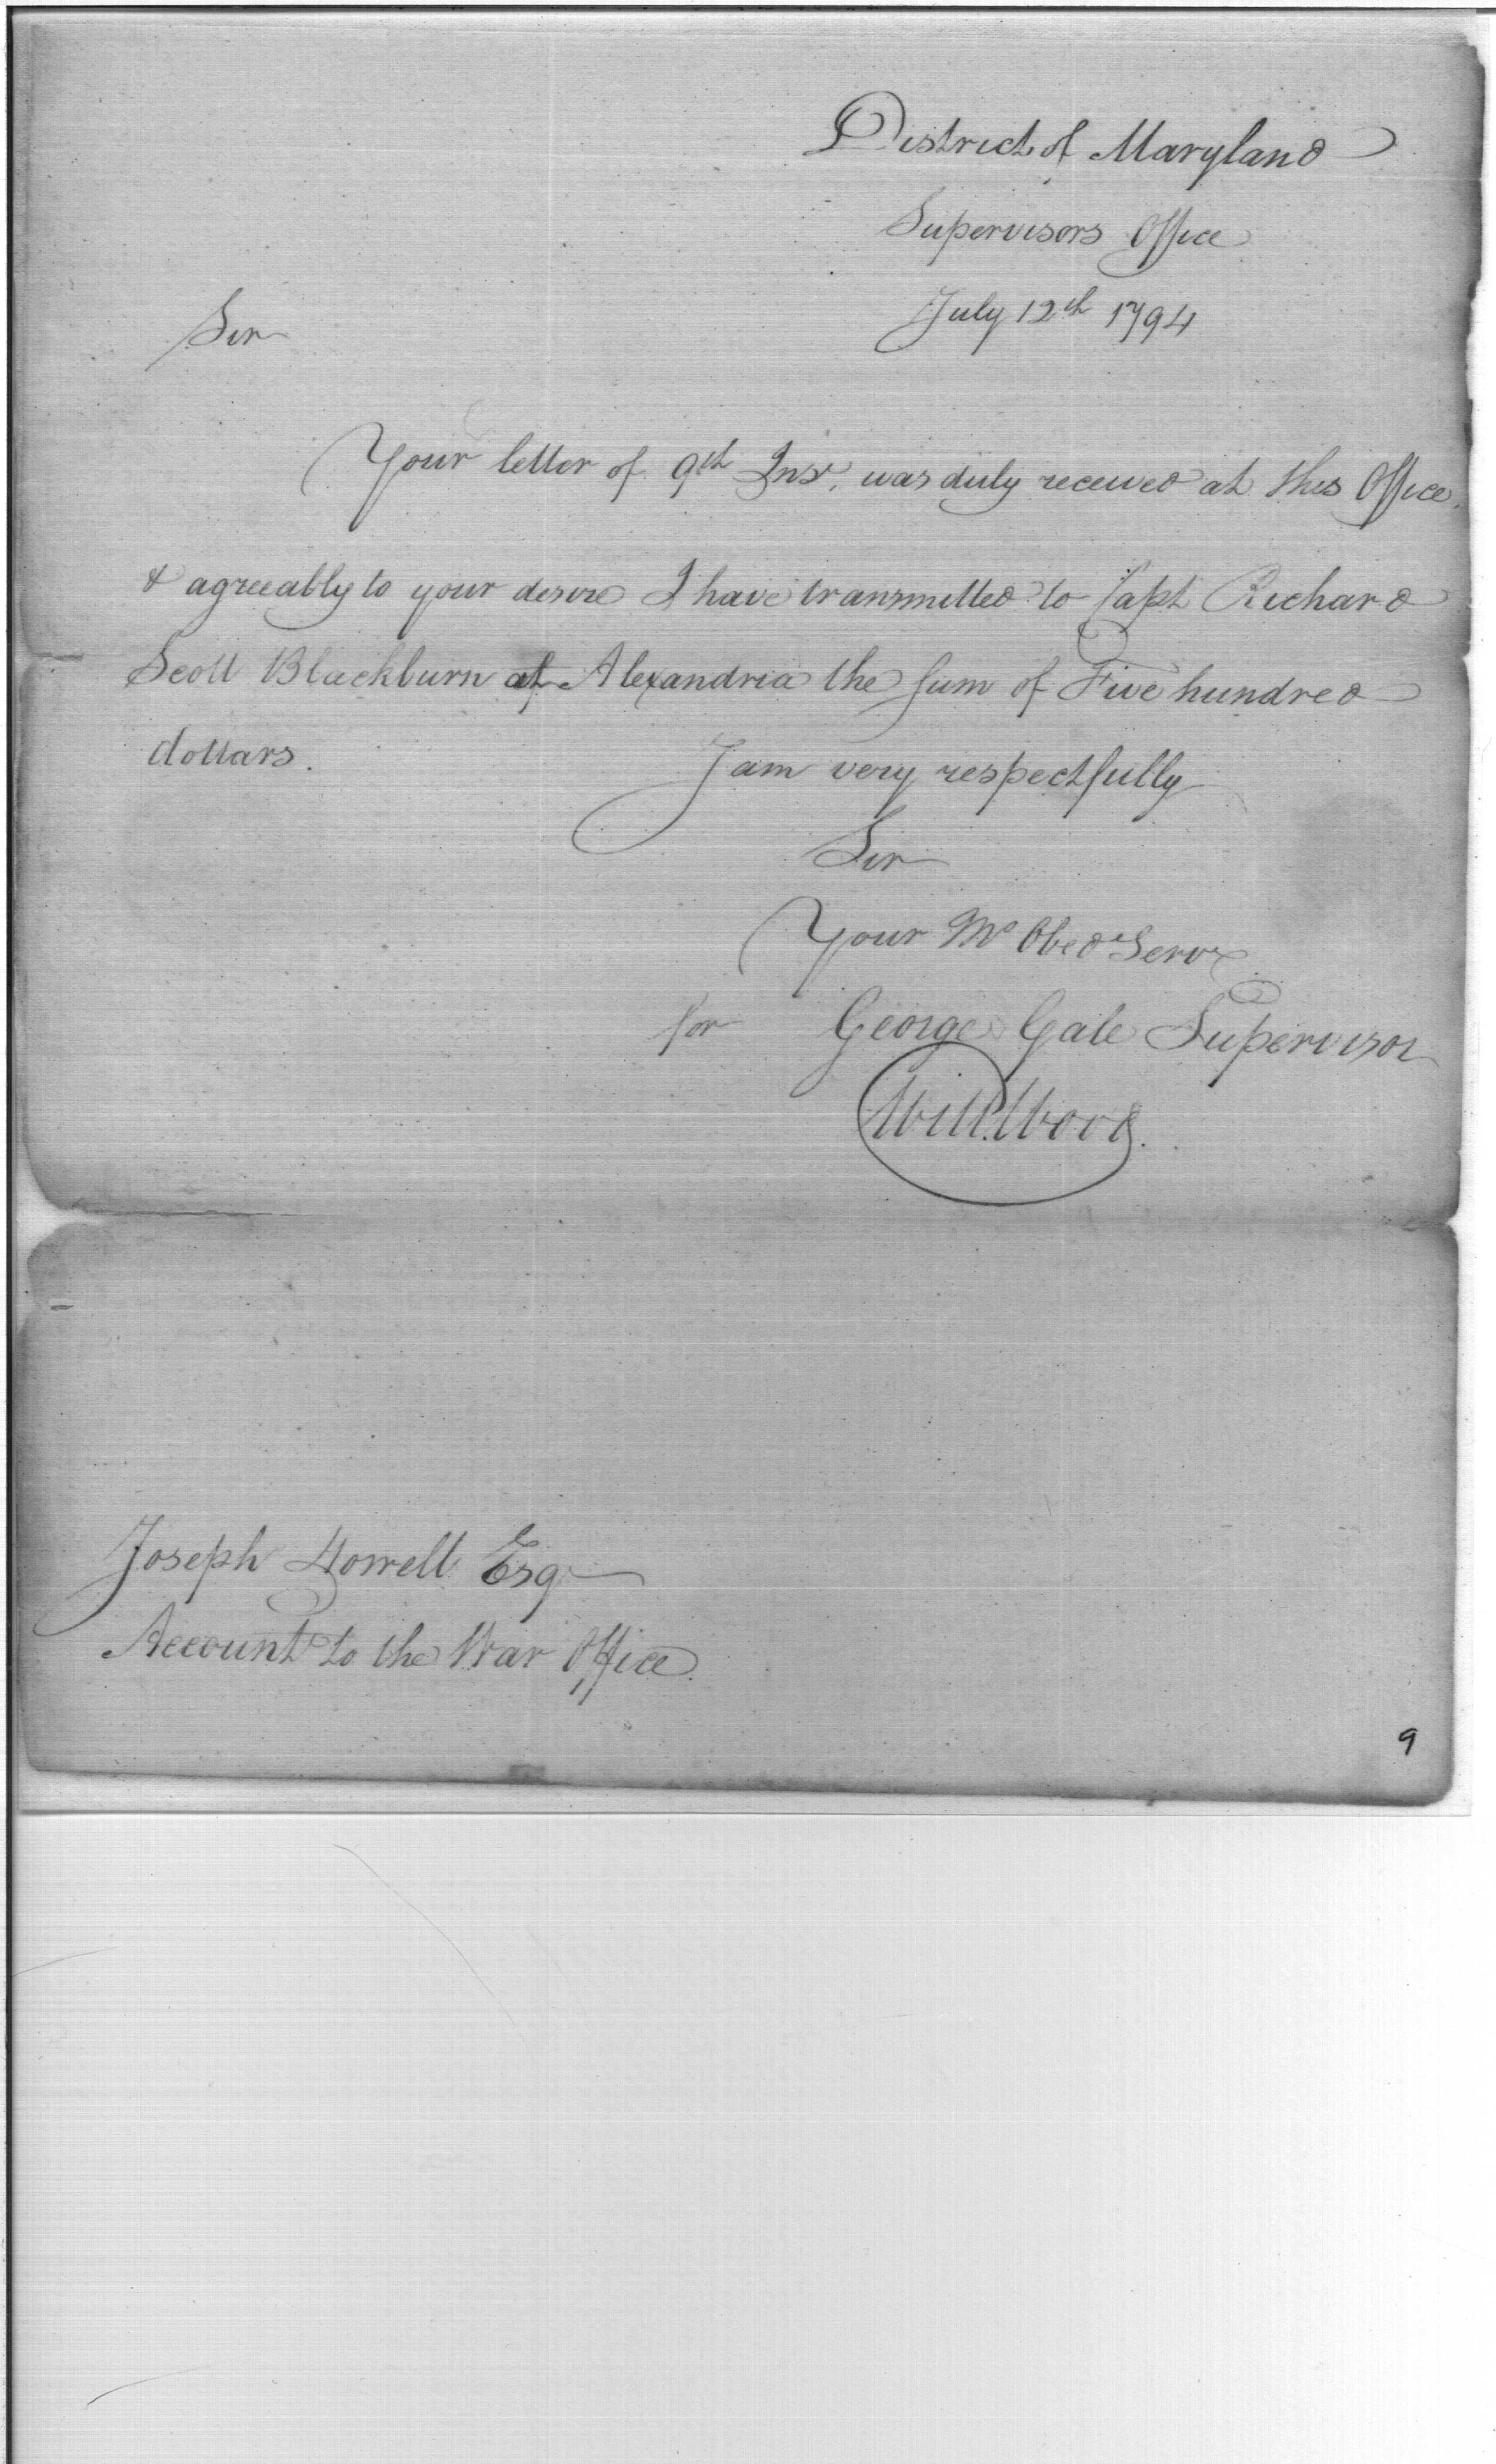 District of Maryland
Supervisors Office
July 12th 1794
Sir
Your letter of 9th Inst, was duly received at this Office,
& agreeably to your desire I have transmitted to Capt Richard
Scott Blackburn at Alexandria the sum of Five hundred
dollars.
I am very respectfully
Sir
Your Mo Obedt Servt
for George Gale Supervisor
Will. Wood.
Joseph Howell Esqr
Accountt to the War Office.
9